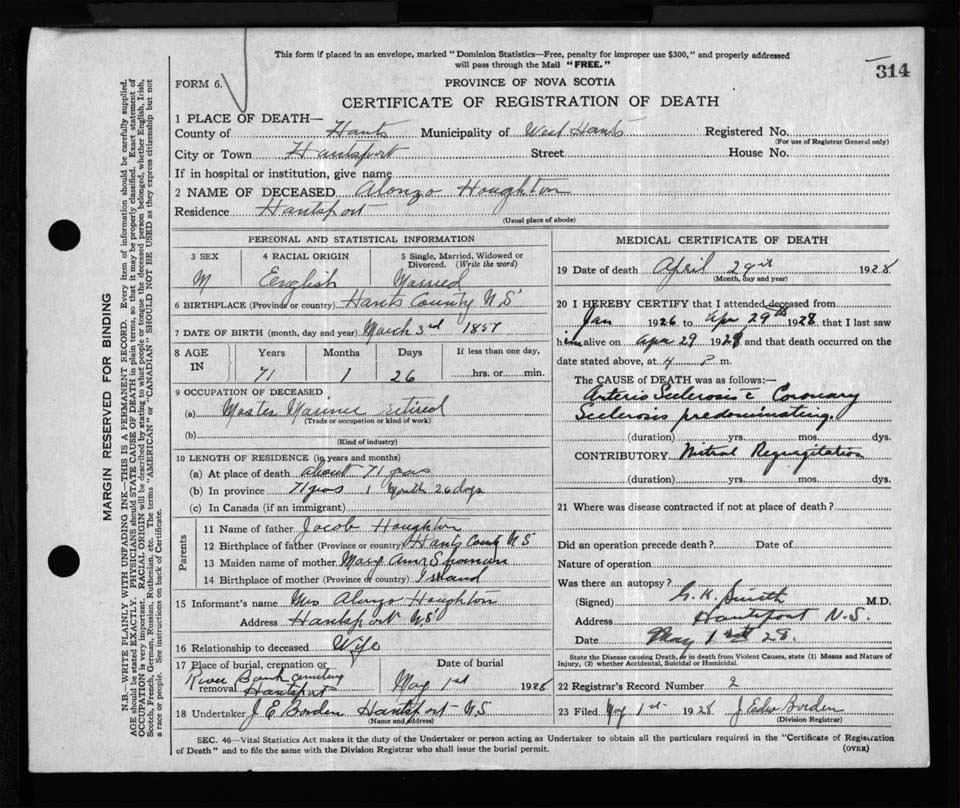 This form if placed in an envelope, marked "Dominion Statistics—Free, penalty for improper use $300," and properly addressed
will pass through the Mail "FREE."
314
FORM 6.
PROVINCE OF NOVA SCOTIA
CERTIFICATE OF REGISTRATION OF DEATH
1 PLACE OF DEATH—
County of Hants Municipality of West Hants Registered No.
(For use of Registrar General only)
City or Town Hantsport Street House No.
If in hospital or institution, give name
2 NAME OF DECEASED Alonzo Houghton
Residence Hantsport
(Usual place of abode)
PERSONAL AND STATISTICAL INFORMATION
3 SEX 4 RACIAL ORIGIN 5 Single, Married, Widowed or
Divorced. (Write the word)
M English Married
6 BIRTHPLACE (Province or country) Hants County N S
7 DATE OF BIRTH (month, day and year) March 3rd 1857
8 AGE IN Years Months Days If less than one day,
71 1 26 hrs. or min.
9 OCCUPATION OF DECEASED
(a) Master Mariner retired
(Trade or occupation or kind of work)
(b)
(Kind of industry)
10 LENGTH OF RESIDENCE (in years and months)
(a) At place of death about 71 years
(b) In province 71 yrs 1 Month 26 days
(c) In Canada (if an immigrant)
Parents
11 Name of father Jacob Houghton
12 Birthplace of father (Province or country) Hants County N S
13 Maiden name of mother Mary Ann
14 Birthplace of mother (Province or country)
15 Informant's name Mrs Alonzo Houghton
Address Hantsport N.S
16 Relationship to deceased Wife
17 Place of burial, cremation or Date of burial
removal River Bank Cemetery
Hantsport May 1st 1928
18 Undertaker J E Borden Hantsport N.S
(Name and address)
MEDICAL CERTIFICATE OF DEATH
19 Date of death April 29th 1928
(Month, day and year)
20 I HEREBY CERTIFY that I attended deceased from
Jan 1926 to Apr 29th 1928 that I last saw
him alive on Apr 29 1928, and that death occurred on the
date stated above, at 4 P. m.
The CAUSE OF DEATH was as follows:—
Arterio Sclerosis c Coronary
Sclerosis predominating.
(duration) yrs. mos. dys.
CONTRIBUTORY Mitral Regurgitation
(duration) yrs. mos. dys.
21 Where was disease contracted if not at place of death?
Did an operation precede death? Date of
Nature of operation
Was there an autopsy?
(Signed) G. K. Smith M.D.
Address Hantsport N.S.
Date May 1st 28.
State the Disease causing Death, or in death from Violent Causes, state (1) Means and Nature of
Injury, (2) whether Accidental, Suicidal or Homicidal.
22 Registrar's Record Number 2
23 Filed May 1st 1928 J Borden
(Division Registrar)
SEC. 46—Vital Statistics Act makes it the duty of the Undertaker or person acting as Undertaker to obtain all the particulars required in the "Certificate of Registration
of Death" and to file the same with the Division Registrar who shall issue the burial permit.
(OVER)
MARGIN RESERVED FOR BINDING
N.B.—WRITE PLAINLY WITH UNFADING INK—THIS IS A PERMANENT RECORD. Every item of information should be carefully supplied.
AGE should be stated EXACTLY. PHYSICIANS should STATE CAUSE OF DEATH in plain terms, so that it may be properly classified. Exact statement of
OCCUPATION is very important. RACIAL ORIGIN will be described by stating to what people or tongue the deceased person belonged, whether English, Irish,
Scotch, French, German, Russian, Ruthenian, etc. The terms "AMERICAN" or "CANADIAN" SHOULD NOT BE USED as they express citizenship but not
a race or people. See instructions on back of Certificate.